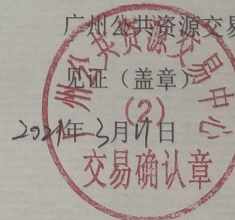 广州公共资源交易
见证（盖章）
2021年3月17日
广州公共资源交易中心
(2)
交易确认章